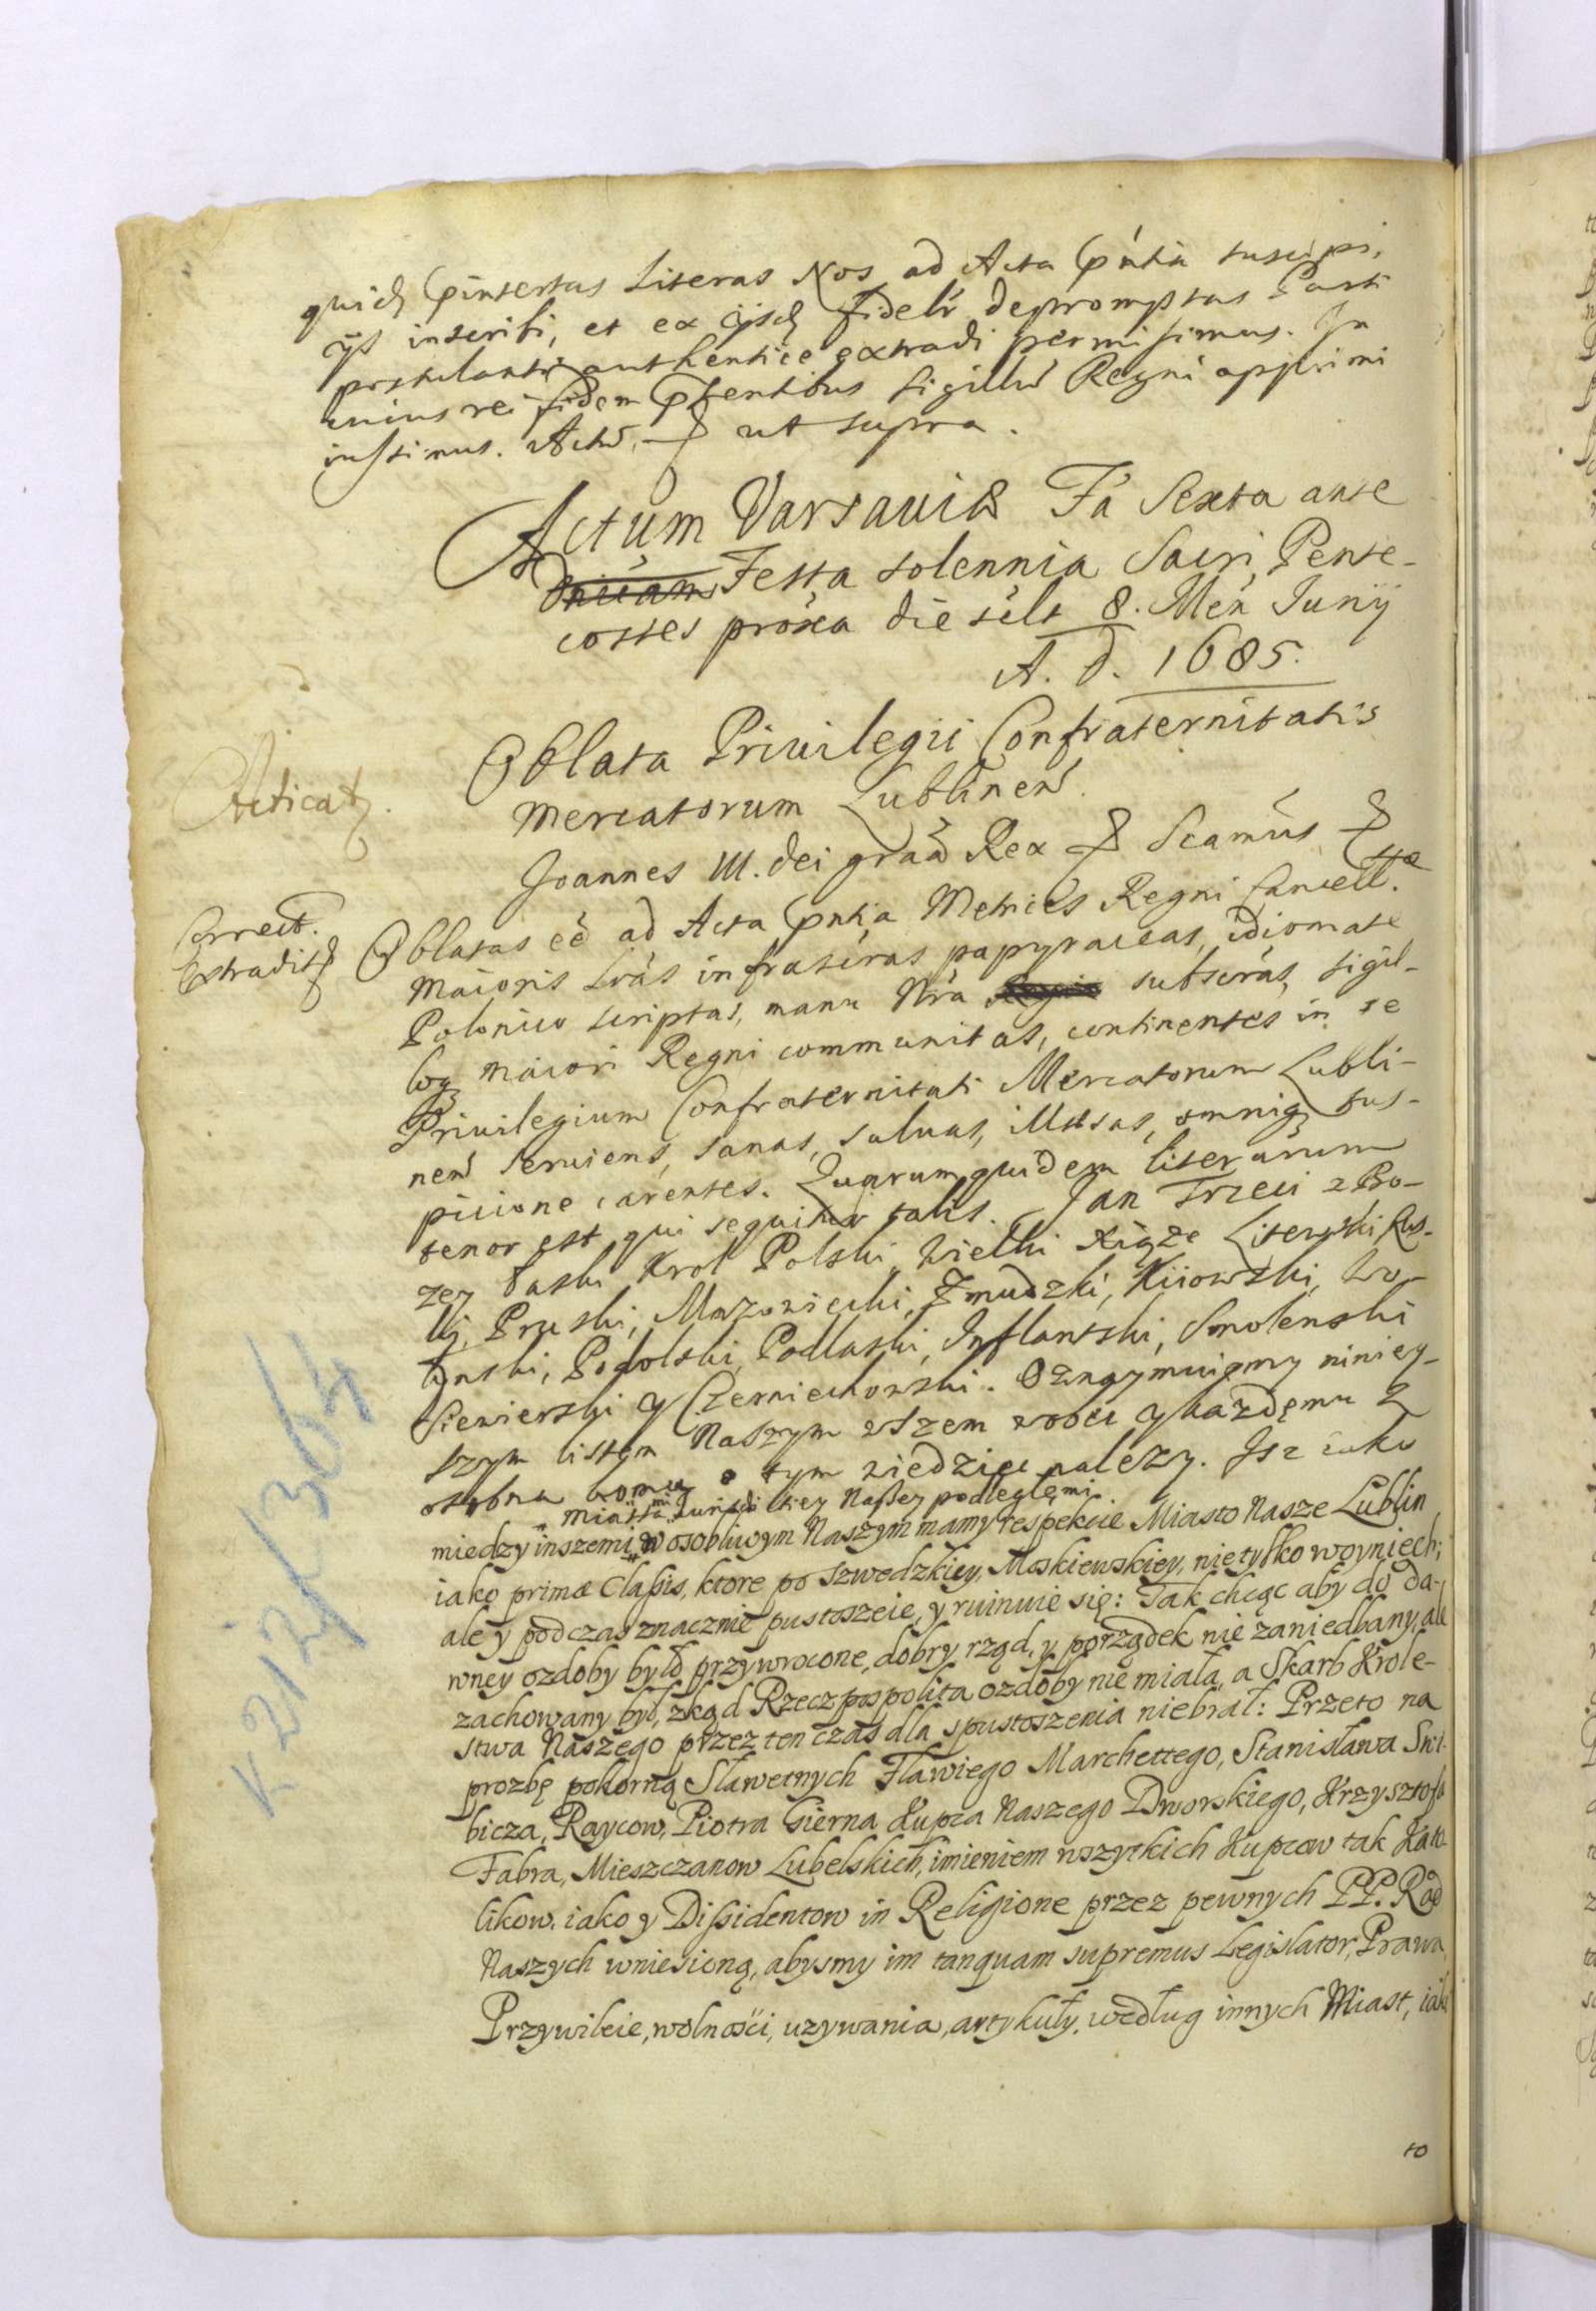 quidē pinsertas Literas Nos ad Acta pntia suscipi,
ijs inseribi, et ex ijsdē fidelr depromptas Parti
postulanti authentice extradi permisimus. In
cuius rei fidem pñtibus Sigillū Regni apprimi
iussimus. Actū, ut supra.
Actum Varsauiæ Fa Sexta ante
Festa solennia Sacri Pente-
costes proxa die silt 8. Men Junij
A. D. 1685.
Oblata Priuilegii Confraternitatis
Mercatorum Lublinen.
Acticat.
Joannes III. dei graa Rex Scamus
Correct.
Extradit
Oblatas ee ad Acta pntia Metrices Regni Cancell.
Maioris Lras infrascras papyraceas, idiomate
Polonico scriptas, manu Nra subscras, sigil-
loq maiori Regni communitas, continentes in se
Priuilegium Confraternitati Mercatorum Lubli-
nen seruiens, sanas, saluas, illæsas, omniq sus-
picione carentes. Quarum quidem literarum
tenor est qui sequitur talis. Jan Trzeci z Bo-
zey Łaski Krol Polski, Wielki Xiąże Litewski, Rus-
ki, Pruski, Mazowiecki, Zmudzki, Kiiowski, Wo-
łynski, Podolski, Podlaski, Inflantski, Smolenski
Siewierski y Czerniechowski. Oznaymuiemy niniey-
szym listem Naszym wszem wobec y kazdemu z
osobna komu o tym wiedziec nalezy. Isz iako
miastami Jurisdictiey Naßey podległemi
miedzy inszemi w osobliwym Naszym mamy respekcie Miasto Nasze Lublin
iako primæ Claßis, ktore po Szwedzkiey, Moskiewskiey, nietylko woyniech;
ale y podczas znacznie pustoszeie, y ruinuie się: Tak chcąc aby do da-
wney ozdoby było przywrocone, dobry rząd, y porządek nie zaniedbany, ale
zachowany był, zkąd Rzeczpospolita ozdoby nie miała, a Skarb Krole-
stwa Naszego przez ten czas dla spustoszenia niebrał: Przeto na
prozbę pokorną Sławetnych Flawiego Marchettego, Stanisława Skil-
bicza, Raycow, Piotra Gierna Kupca Naszego Dworskiego, Krzysztofa
Fabra, Mieszczanow Lubelskich, imieniem wszytkich Kupcow tak Kato-
likow, iako y Dißidentow in Religione przez pewnych PP. Rad
Naszych wniesioną, abysmy im tanquam supremus Legislator, Prawa,
Przywileie, wolności, uzywania, artykuły, według innych Miast, iako
to
K 212/364